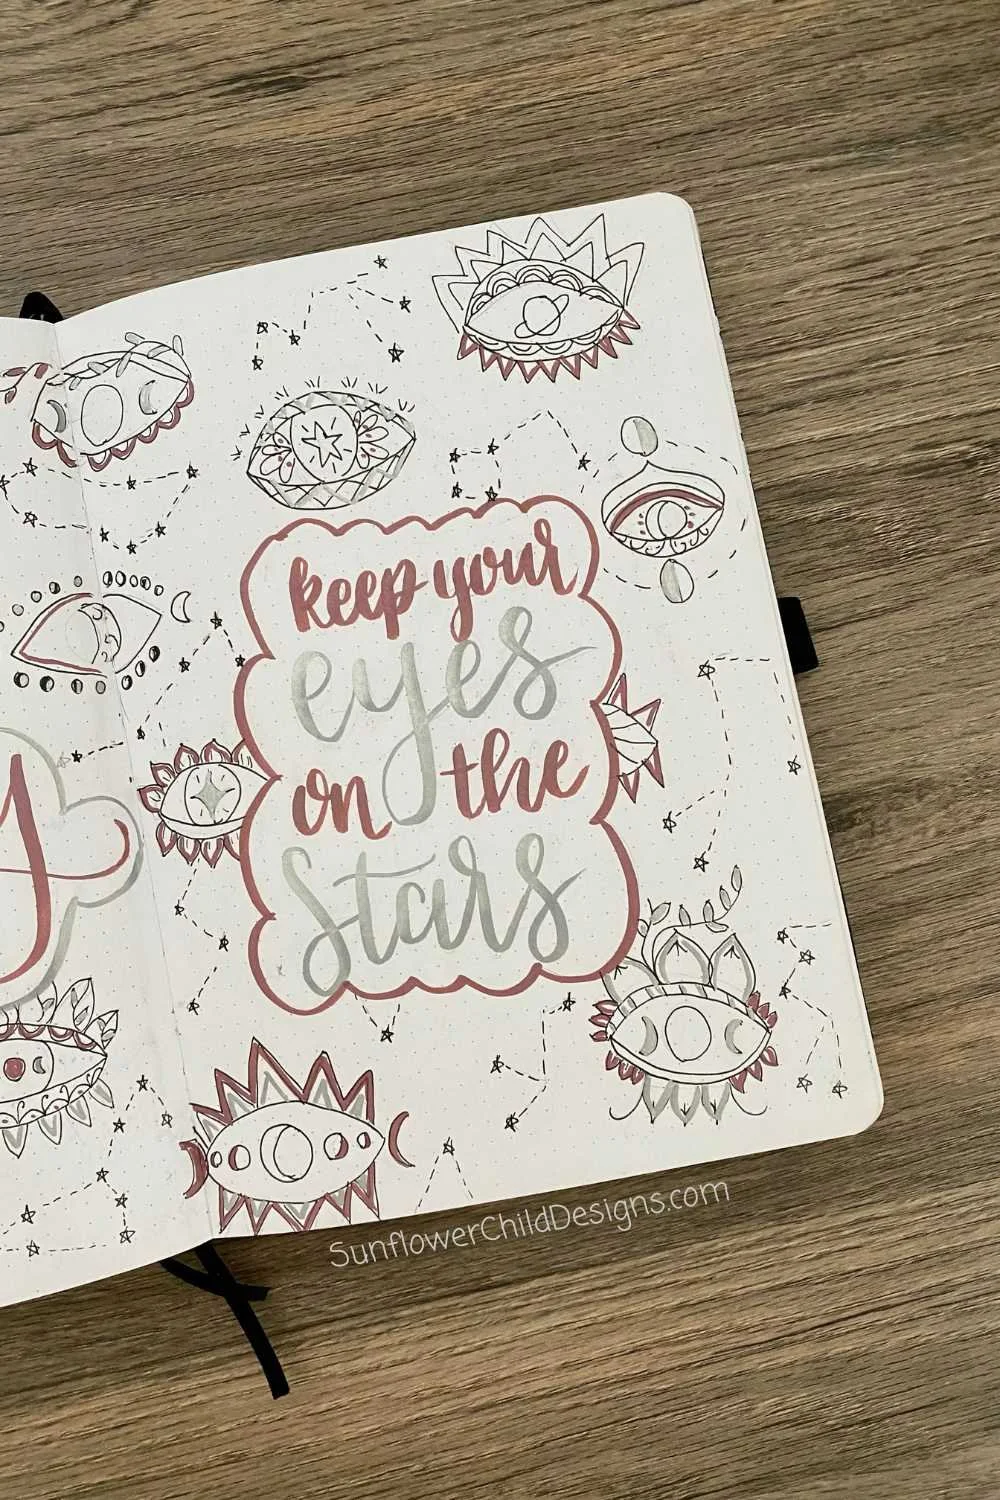 keep your
eyes
on the
stars
SunflowerChildDesigns.com